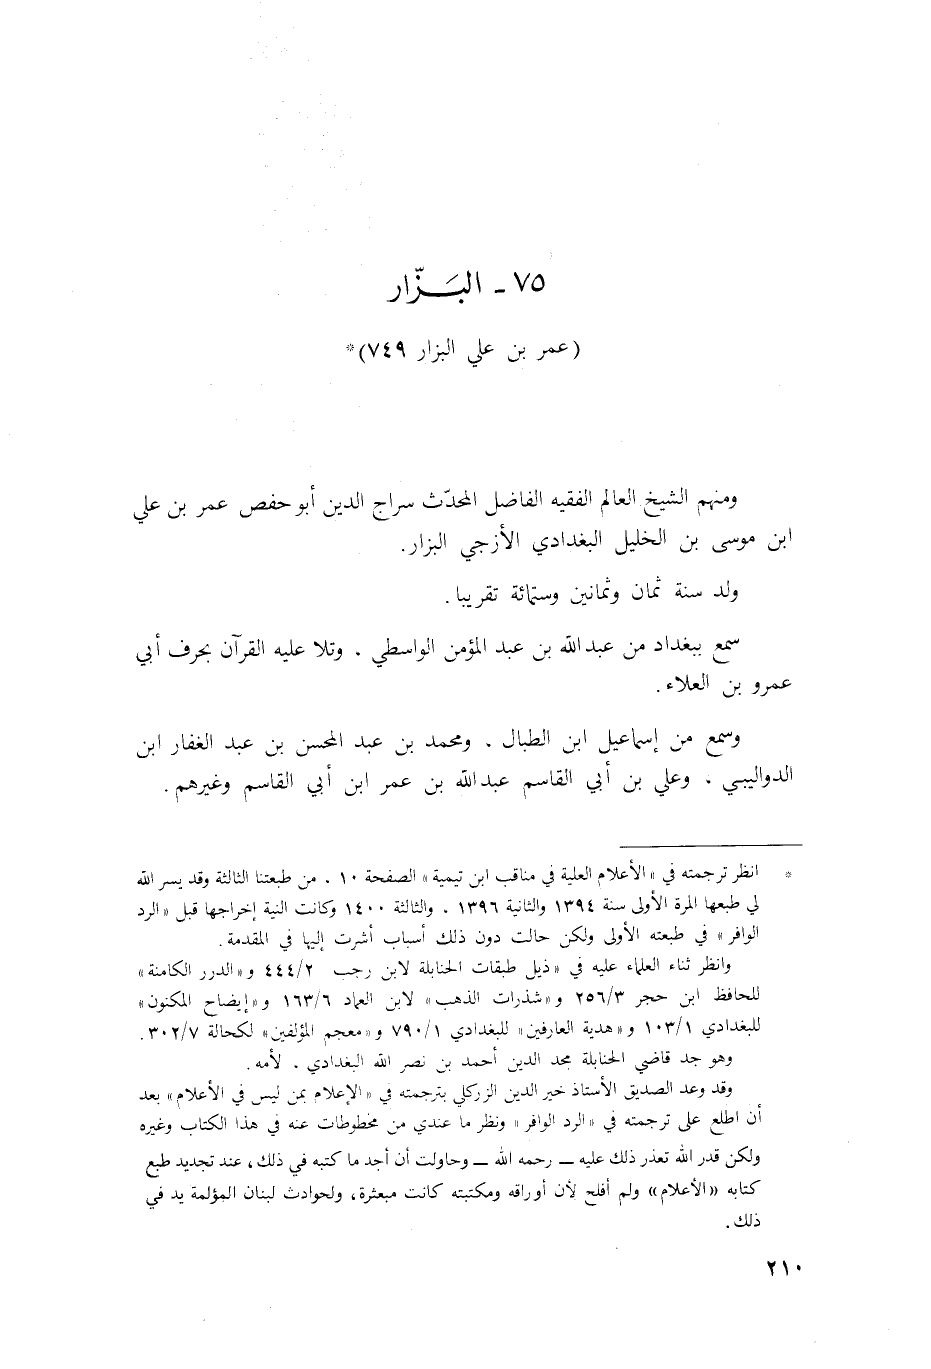 ٧٥ - البَـزَّار
(عمر بن علي البزار ٧٤٩)*
ومنهم الشيخ العالم الفقيه الفاضل المحدّث سراج الدين أبو حفص عمر بن علي
ابن موسى بن الخليل البغدادي الأزجي البزار.
ولد سنة ثمان وثمانين وستمائة تقريبا .
سمع ببغداد من عبدالله بن عبد المؤمن الواسطي . وتلا عليه القرآن بحرف أبي
عمرو بن العلاء .
وسمع من إسماعيل ابن الطبال . ومحمد بن عبد المحسن بن عبد الغفار ابن
الدواليبي . وعلي بن أبي القاسم عبدالله بن عمر ابن أبي القاسم وغيرهم .
* انظر ترجمته في «الأعلام العلية في مناقب ابن تيمية» الصفحة ١٠ . من طبعتنا الثالثة وقد يسر الله
لي طبعها المرة الأولى سنة ١٣٩٤ والثانية ١٣٩٦ . والثالثة ١٤٠٠ وكانت النية إخراجها قبل «الرد
الوافر» في طبعته الأولى ولكن حالت دون ذلك أسباب أشرت إليها في المقدمة .
وانظر ثناء العلماء عليه في «ذيل طبقات الحنابلة لابن رجب ٤٤٤/٢ و«الدرر الكامنة»
للحافظ ابن حجر ٢٥٦/٣ و«شذرات الذهب» لابن العماد ١٦٣/٦ و«إيضاح المكنون»
للبغدادي ١٠٣/١ و«هدية العارفين» للبغدادي ٧٩٠/١ و«معجم المؤلفين» لكحالة ٣٠٢/٧ .
وهو جد قاضي الحنابلة محد الدين أحمد بن نصر الله البغدادي . لأمه .
وقد وعد الصديق الأستاذ خير الدين الزركلي بترجمته في «الإعلام بمن ليس في الأعلام» بعد
أن اطلع على ترجمته في «الرد الوافر» ونظر ما عندي من مخطوطات عنه في هذا الكتاب وغيره
ولكن قدر الله تعذر ذلك عليه ــ رحمه الله ــ وحاولت أن أجد ما كتبه في ذلك، عند تجديد طبع
كتابه «الأعلام» ولم أفلح لأن أوراقه ومكتبته كانت مبعثرة، ولحوادث لبنان المؤلمة يد في
ذلك .
٢١٠